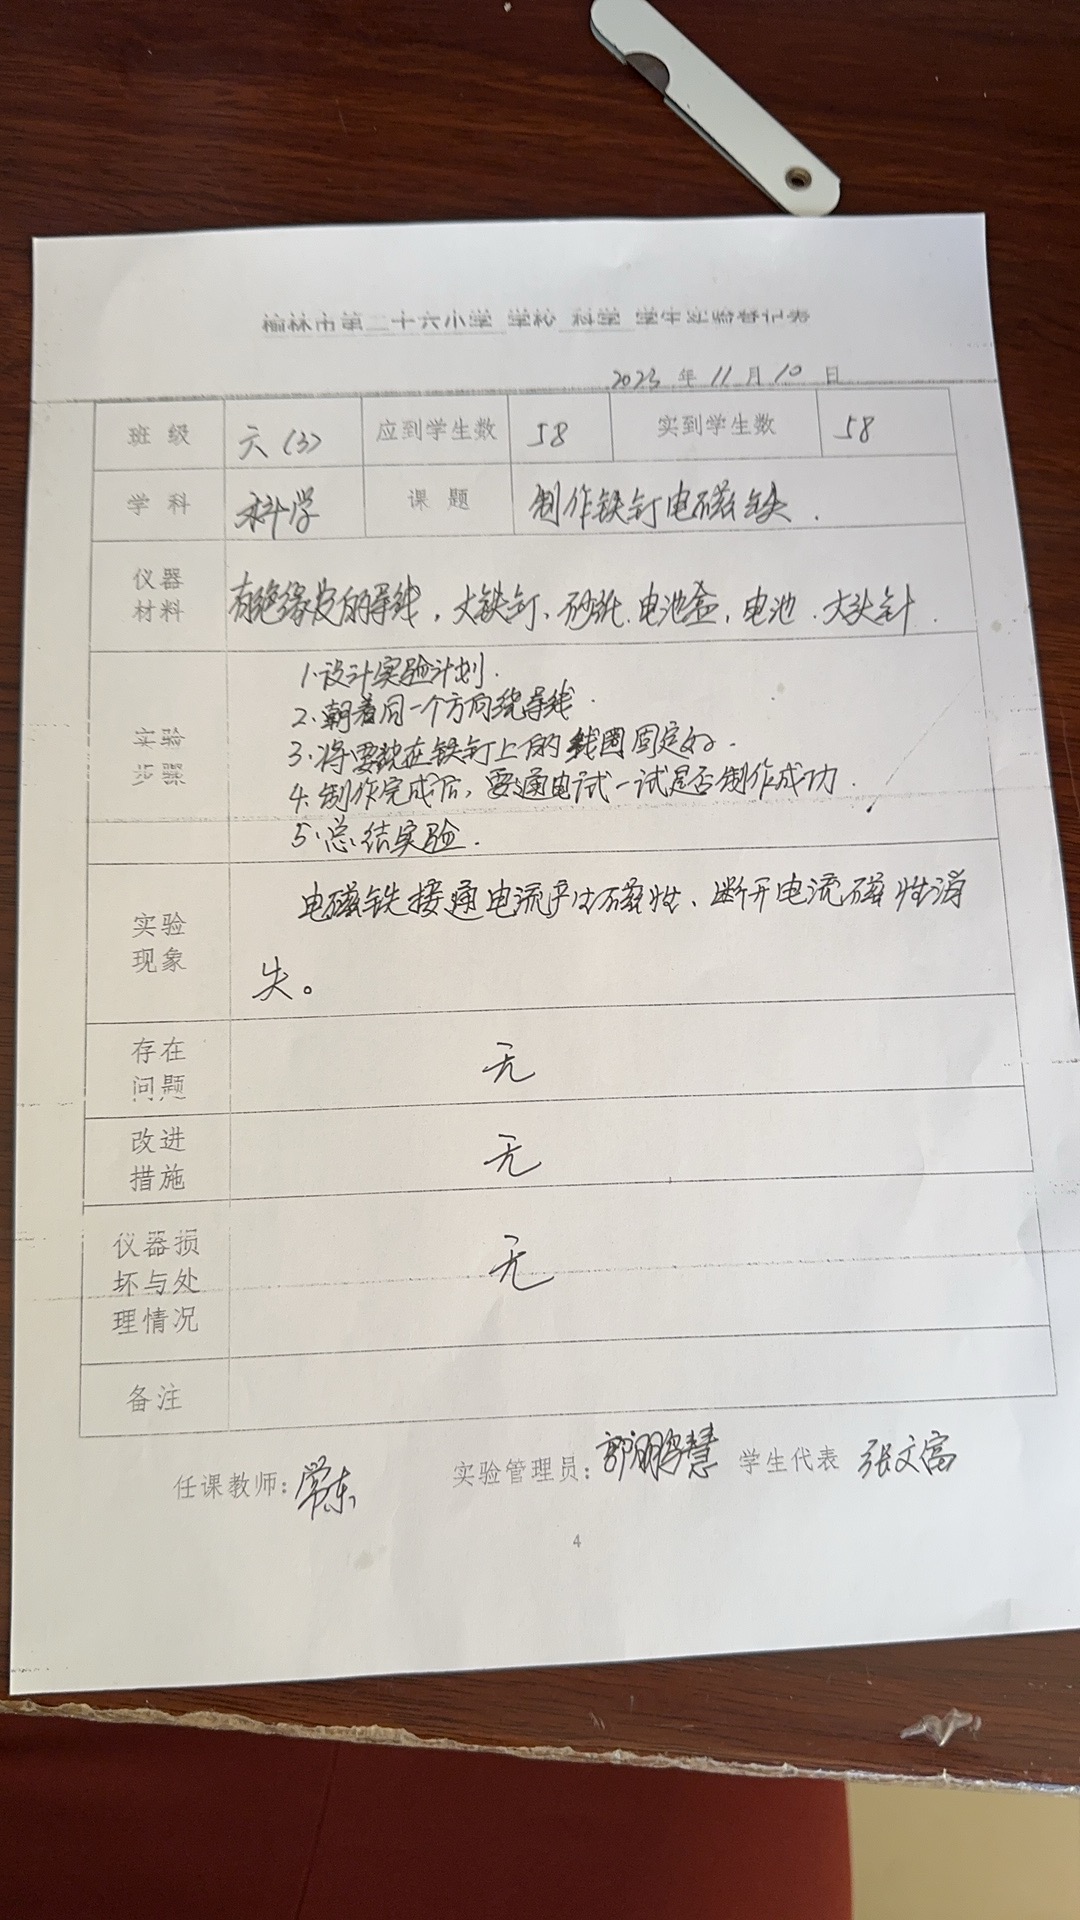 榆林市第二十六小学 学校 科学 学生实验登记表
2023 年 11 月 10 日
班级 六(3) 应到学生数 58 实到学生数 58
学科 科学 课题 制作铁钉电磁铁.
仪器
材料
有绝缘皮的导线,大铁钉、砂纸、电池盒,电池、大头针.
实验
步骤
1.设计实验计划.
2.朝着同一个方向绕导线.
3.将要绕在铁钉上的线圈固定好.
4.制作完成后,要通电试一试是否制作成功.
5.总结实验.
实验
现象
电磁铁接通电流产生磁性、断开电流磁性消
失。
存在
问题
无
改进
措施
无
仪器损
坏与处
理情况
无
备注
任课教师: 常东 实验管理员: 郭 慧 学生代表 张文富
4